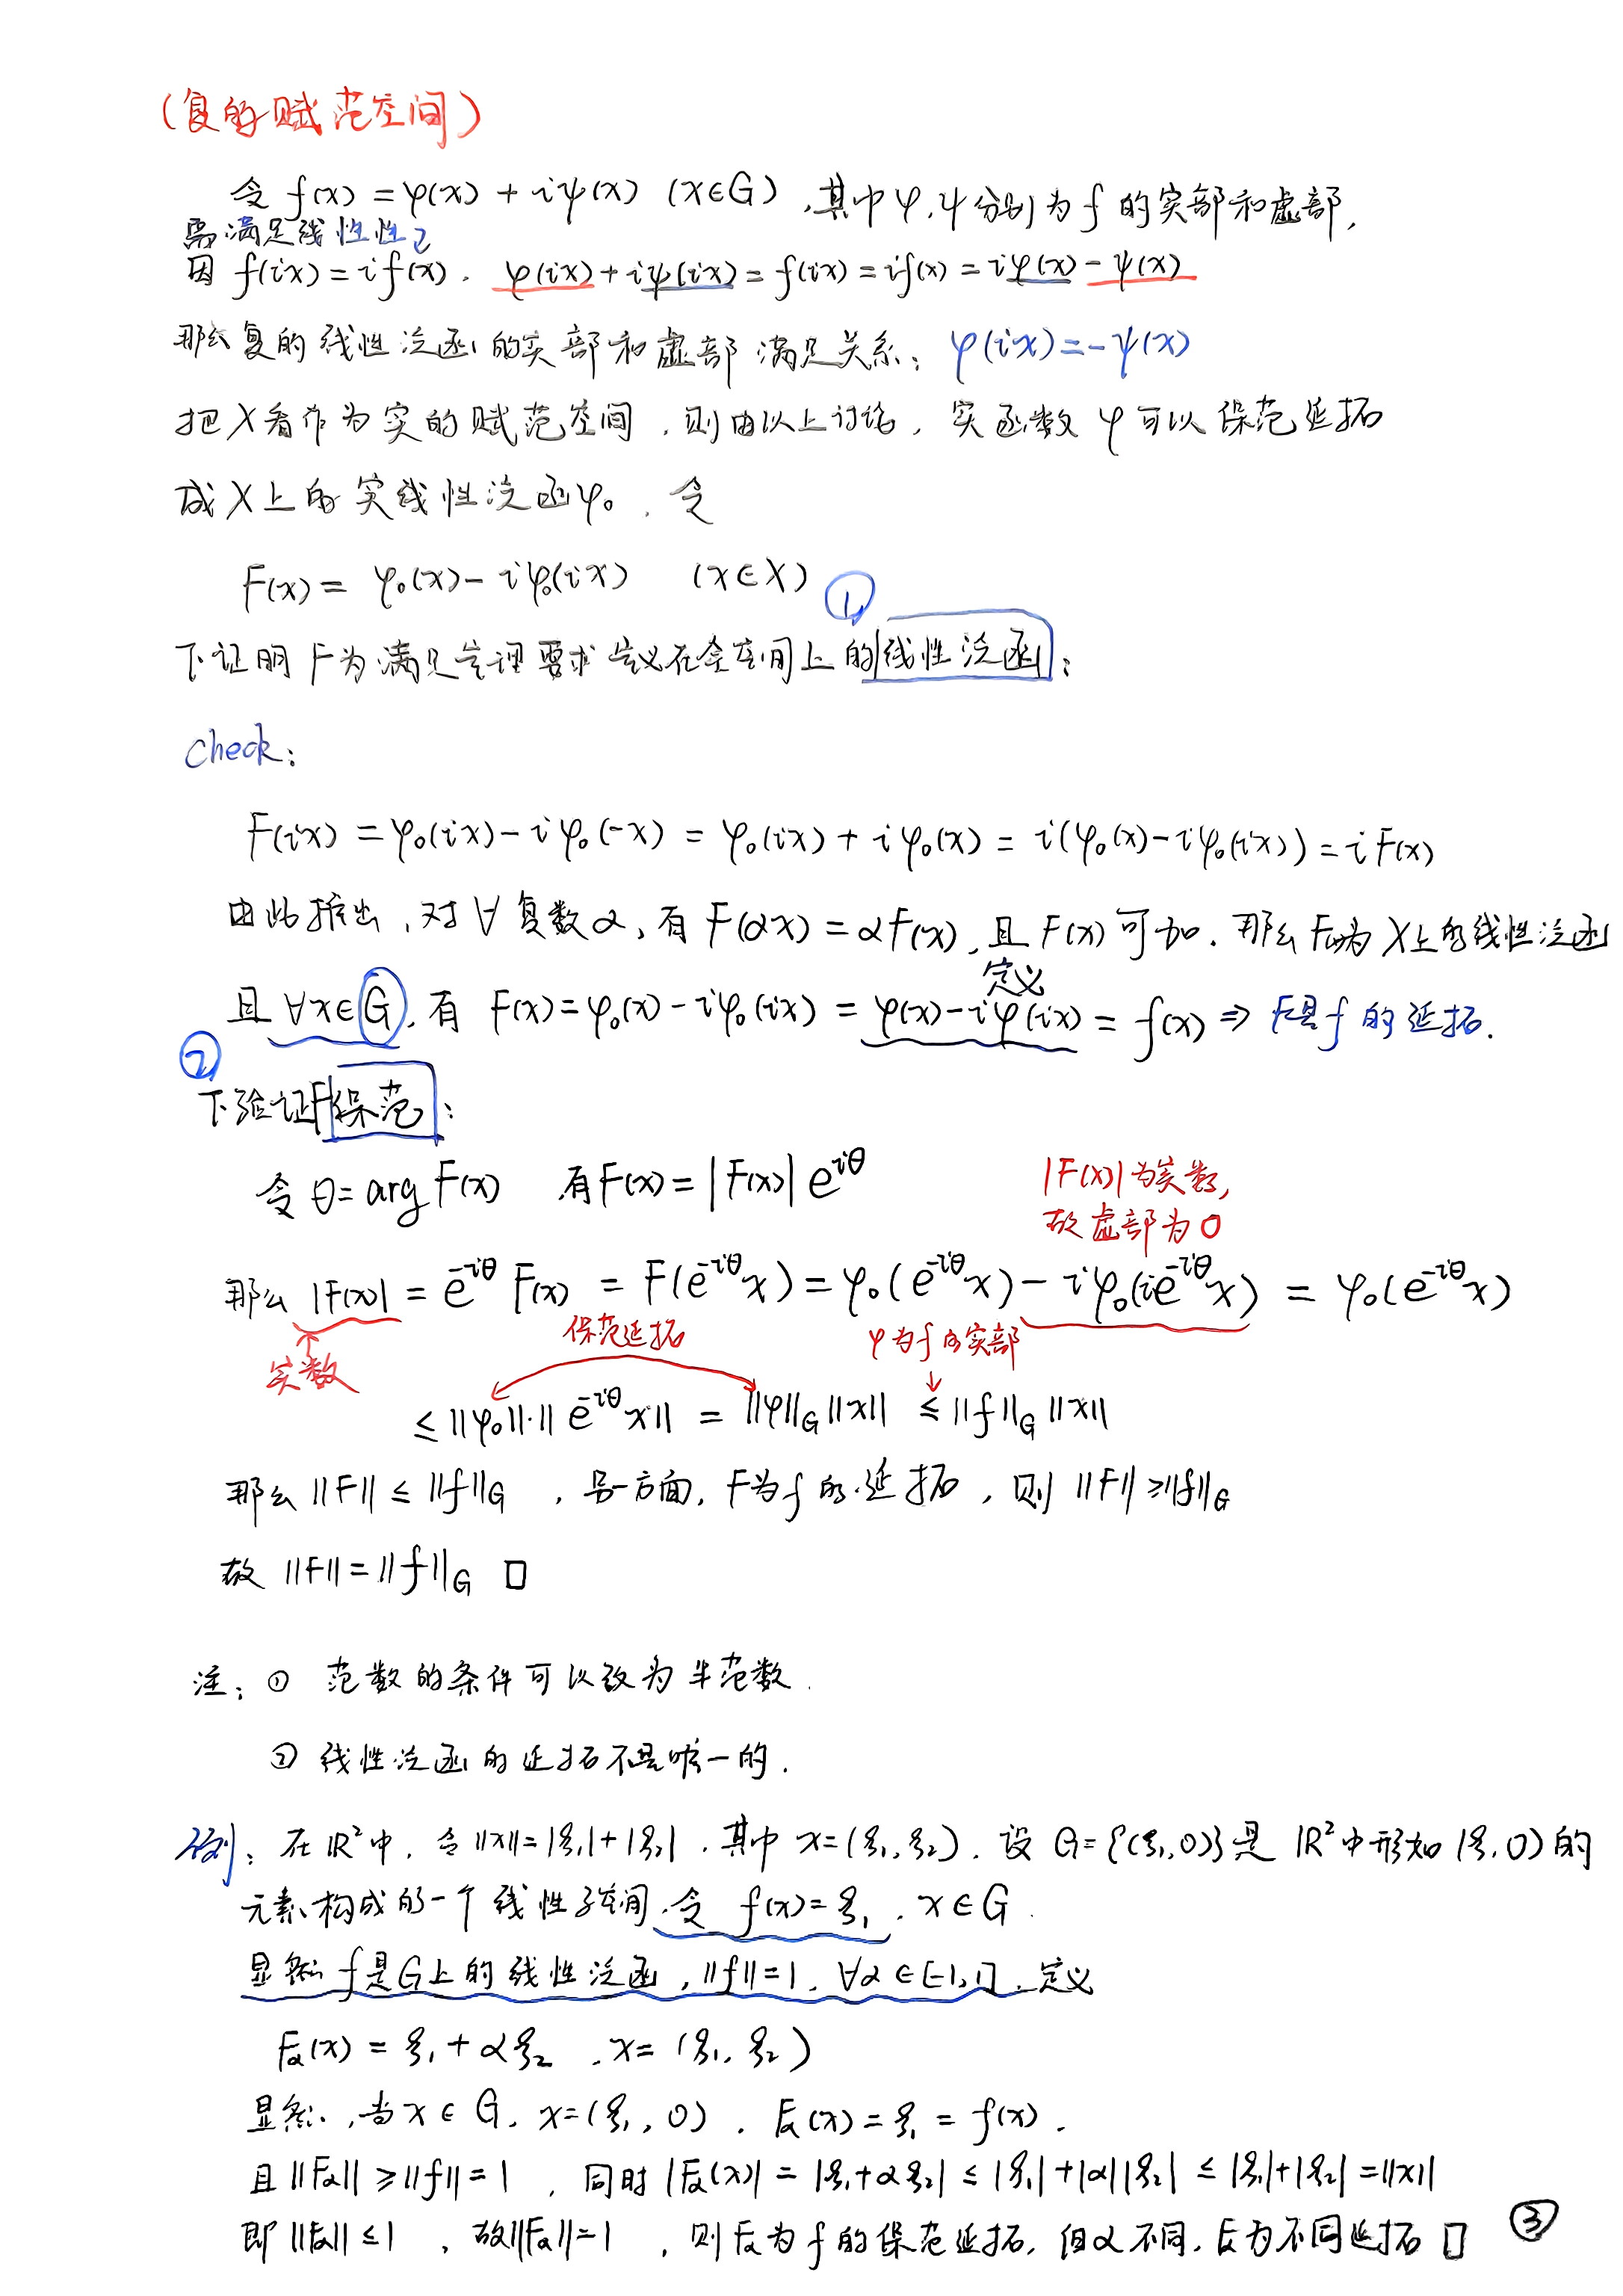 (复的赋范空间)
令 f(x) = φ(x) + iψ(x) (x∈G),其中φ,ψ分别为f的实部和虚部,
需满足线性性
因 f(ix) = if(x). φ(ix) + iψ(ix) = f(ix) = if(x) = iφ(x) - ψ(x)
那么复的线性泛函的实部和虚部满足关系: φ(ix) = -ψ(x)
把X看作为实的赋范空间,则由以上讨论,实函数φ可以保范延拓
成X上的实线性泛函φ₀. 令
F(x) = φ₀(x) - iφ₀(ix) (x∈X)
①
下证明F为满足定理要求定义在全空间上的线性泛函:
Check:
F(ix) = φ₀(ix) - iφ₀(-x) = φ₀(ix) + iφ₀(x) = i(φ₀(x) - iφ₀(ix)) = iF(x)
由此推出,对∀复数α,有F(αx) = αF(x),且F(x)可加. 那么F(x)为X上的线性泛函
定义
且∀x∈G,有 F(x) = φ₀(x) - iφ₀(ix) = φ(x) - iφ(ix) = f(x) ⇒ F是f的延拓.
②
下验证F保范:
令θ = arg F(x) 有F(x) = |F(x)| e^{iθ}
|F(x)|为实数,
故虚部为0
那么 |F(x)| = e^{-iθ} F(x) = F(e^{-iθ}x) = φ₀(e^{-iθ}x) - iφ₀(ie^{-iθ}x) = φ₀(e^{-iθ}x)
实数
保范延拓
φ为f的实部
≤ ||φ₀||·||e^{-iθ}x|| = ||φ||_G ||x|| ≤ ||f||_G ||x||
那么 ||F|| ≤ ||f||_G ,另一方面,F为f的延拓,则 ||F|| ≥ ||f||_G
故 ||F|| = ||f||_G □
注: ① 范数的条件可以改为半范数.
② 线性泛函的延拓不是唯一的.
例: 在ℝ²中,令||x|| = |ξ₁| + |ξ₂|,其中 x = (ξ₁, ξ₂). 设 G = {(ξ₁, 0)}是ℝ²中形如(ξ, 0)的
元素构成的一个线性子空间.令 f(x) = ξ₁, x∈G.
显然f是G上的线性泛函,||f|| = 1, ∀α∈[-1,1],定义
Fα(x) = ξ₁ + αξ₂ , x = (ξ₁, ξ₂)
显然,当x∈G, x = (ξ₁, 0), Fα(x) = ξ₁ = f(x).
且||Fα|| ≥ ||f|| = 1 , 同时|Fα(x)| = |ξ₁ + αξ₂| ≤ |ξ₁| + |α||ξ₂| ≤ |ξ₁| + |ξ₂| = ||x||
即||Fα|| ≤ 1 ,故||Fα|| = 1 ,则Fα为f的保范延拓,但α不同,Fα为不同延拓 □
③